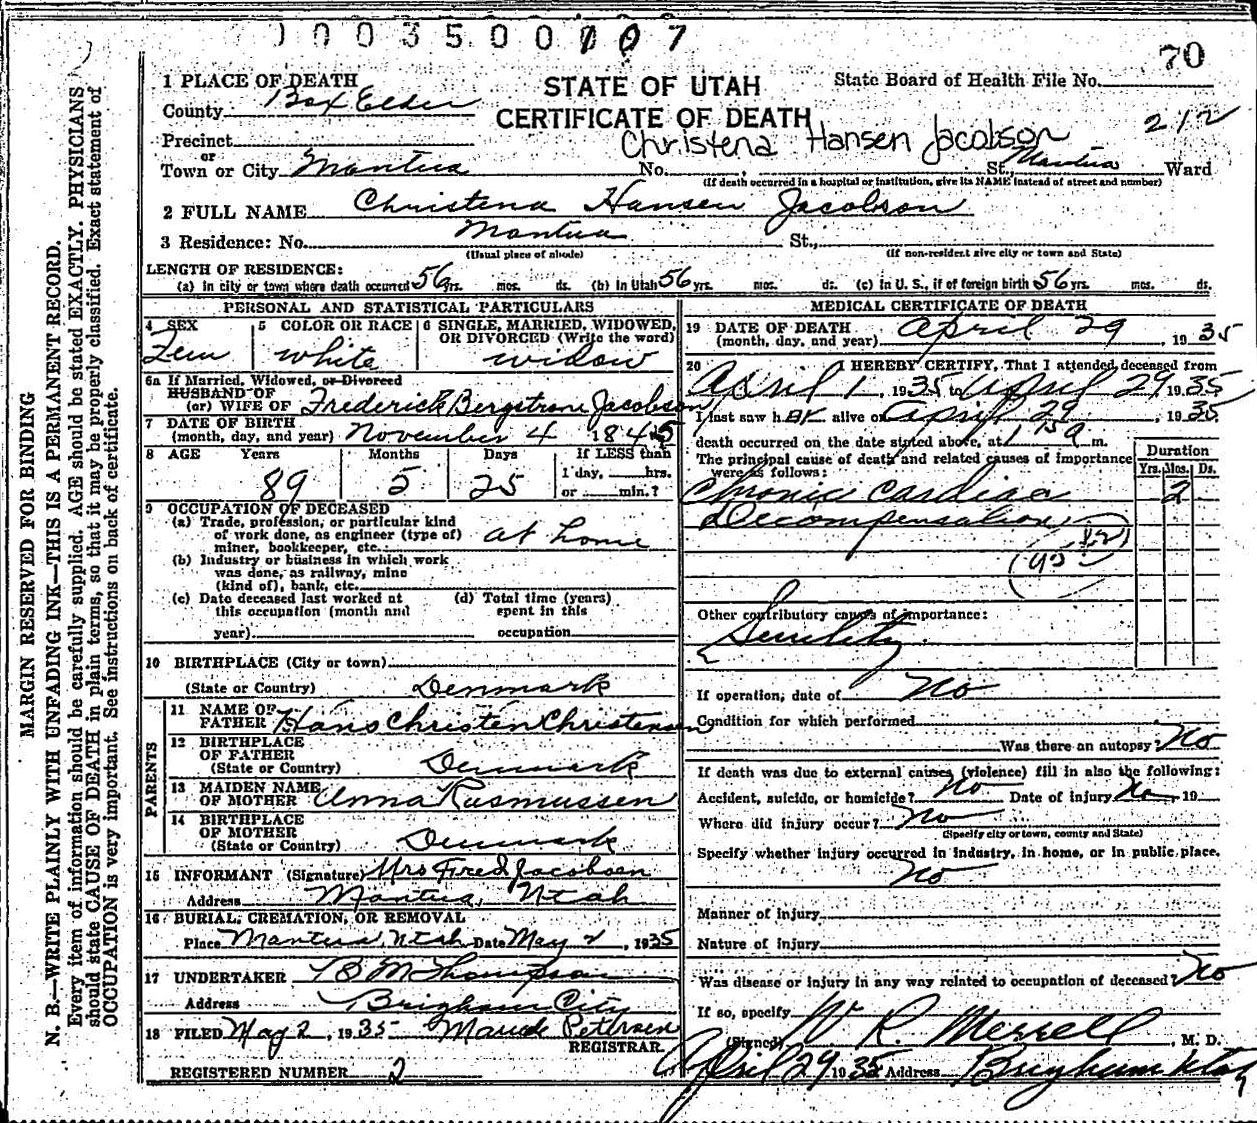 1003500107
70
1 PLACE OF DEATH
STATE OF UTAH
State Board of Health File No.
County Box Elder
CERTIFICATE OF DEATH
212
Precinct
Christena Hansen Jacobson
or
Town or City Mantua No. , St., Mantua Ward
(If death occurred in a hospital or institution, give its NAME instead of street and number)
2 FULL NAME Christena Hansen Jacobson
3 Residence: No. Mantua St.,
(Usual place of abode) (If non-resident give city or town and State)
LENGTH OF RESIDENCE:
(a) In city or town where death occurred 56 yrs. mos. ds. (b) In Utah 56 yrs. mos. ds. (c) In U. S., if of foreign birth 56 yrs. mos. ds.
PERSONAL AND STATISTICAL PARTICULARS
4 SEX 5 COLOR OR RACE 6 SINGLE, MARRIED, WIDOWED,
OR DIVORCED (Write the word)
Fem white widow
6a If Married, Widowed, or Divorced
HUSBAND OF
(or) WIFE OF Frederick Bergstrom Jacobson
7 DATE OF BIRTH
(month, day, and year) November 4 1845
8 AGE Years Months Days If LESS than
1 day, hrs.
89 5 25 or min.?
9 OCCUPATION OF DECEASED
(a) Trade, profession, or particular kind
of work done, as engineer (type of)
miner, bookkeeper, etc. at home
(b) Industry or business in which work
was done, as railway, mine
(kind of), bank, etc.
(c) Date deceased last worked at (d) Total time (years)
this occupation (month and spent in this
year) occupation
10 BIRTHPLACE (City or town)
(State or Country) Denmark
PARENTS
11 NAME OF
FATHER Hans Christen Christensen
12 BIRTHPLACE
OF FATHER
(State or Country) Denmark
13 MAIDEN NAME
OF MOTHER Anna Rasmussen
14 BIRTHPLACE
OF MOTHER
(State or Country) Denmark
15 INFORMANT (Signature) Mrs Fred Jacobsen
Address Mantua, Utah
16 BURIAL, CREMATION, OR REMOVAL
Place Mantua, Utah Date May 2, 1935
17 UNDERTAKER B M Thompson
Address Brigham City
18 FILED May 2, 1935 Maude Petersen
REGISTRAR.
REGISTERED NUMBER 2
MEDICAL CERTIFICATE OF DEATH
19 DATE OF DEATH
(month, day, and year) April 29, 1935
20 I HEREBY CERTIFY, That I attended deceased from
April 1, 1935 to April 29, 1935
I last saw her alive on April 29, 1935.
death occurred on the date stated above, at a m.
The principal cause of death and related causes of importance
were as follows:
Duration
Yrs. Mos. Ds.
Chronic Cardiac 2
Decompensation
Other contributory causes of importance:
Senility.
If operation, date of No
Condition for which performed
Was there an autopsy? No
If death was due to external causes (violence) fill in also the following:
Accident, suicide, or homicide? No Date of injury No, 19
Where did injury occur? No
(Specify city or town, county and State)
Specify whether injury occurred in industry, in home, or in public place.
No
Manner of injury
Nature of injury
Was disease or injury in any way related to occupation of deceased? No
If so, specify
(Signed) W. R. Merrell, M. D.
April 29 1935 Address Brigham Utah
MARGIN RESERVED FOR BINDING
N. B.—WRITE PLAINLY WITH UNFADING INK—THIS IS A PERMANENT RECORD.
Every item of information should be carefully supplied. AGE should be stated EXACTLY. PHYSICIANS
should state CAUSE OF DEATH in plain terms, so that it may be properly classified. Exact statement of
OCCUPATION is very important. See instructions on back of certificate.